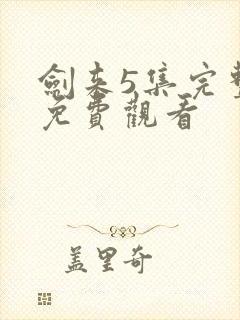 劍來5集完整
免費觀看
盖里奇